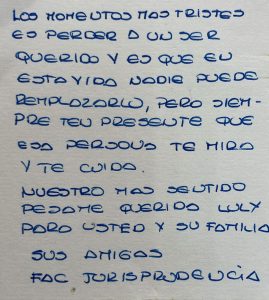 LOS MOMENTOS MAS TRISTES
ES PERDER A UN SER
QUERIDO Y ES QUE EN
ESTA VIDA NADIE PUEDE
REMPLAZARLO, PERO SIEM-
PRE TEN PRESENTE QUE
ESA PERSONA TE MIRA
Y TE CUIDA.
NUESTRO MAS SENTIDO
PESAME QUERIDA LULY
PARA USTED Y SU FAMILIA
SUS AMIGAS
FAC JURISPRUDENCIA